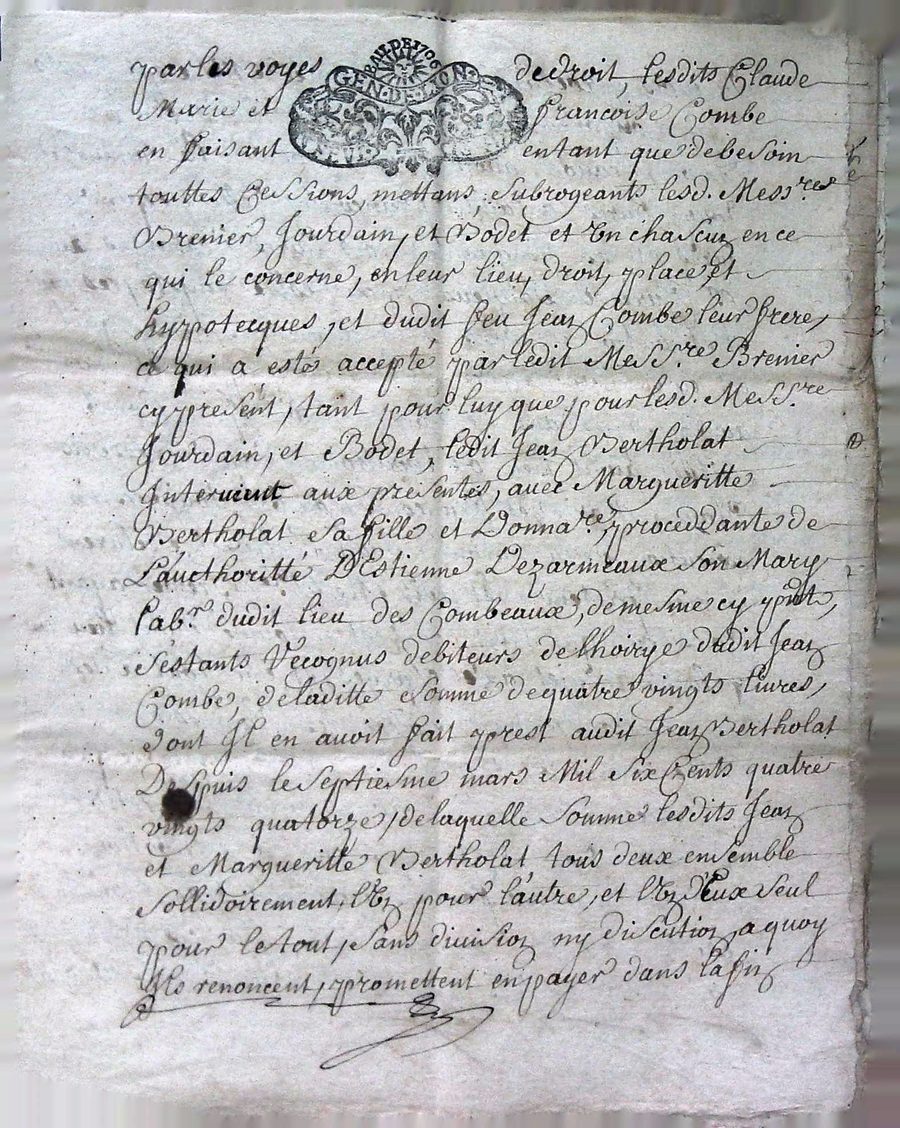 BAIL DE 1706
GEN·DE·LION
par les voyes de droit, lesdits Claude
Marie et francoise Combe
en faisant entant que debesoin
touttes Cessions, mettans, subrogeants lesd. Messres
Brenier, Jourdain, et Bodet et Un chascun en ce
qui le concerne, en leur lieu, droit, place, et
hypotecques, et dudit feu Jean Combe leur frere,
ce qui a esté accepté par ledit Messre Brenier
cy present, tant pour luy que pour lesd. Messre
Jourdain, et Bodet, ledit Jean Bertholat
Intervient aux presentes, avec Margueritte
Bertholat sa fille et Donnare, proceddante de
L'aucthoritté D'Estienne Dezarmeaux son Mary
labr. dudit lieu des Combeaux, demesme cy pnt,
s'estants Recognus debiteurs de lhoirye dudit Jean
Combe, deladitte somme de quatre vingts livres,
dont Il en avoit fait prest audit Jean Bertholat
Despuis le septiesme mars Mil six Cents quatre
vingts quatorze, delaquelle somme lesdits Jean
et Margueritte Bertholat tous deux ensemble
sollidoirement, l'Un pour l'autre, et l'Un d'Eux seul
pour le tout, sans division ny discution, a quoy
Ils renoncent, promettent en payer dans la fin